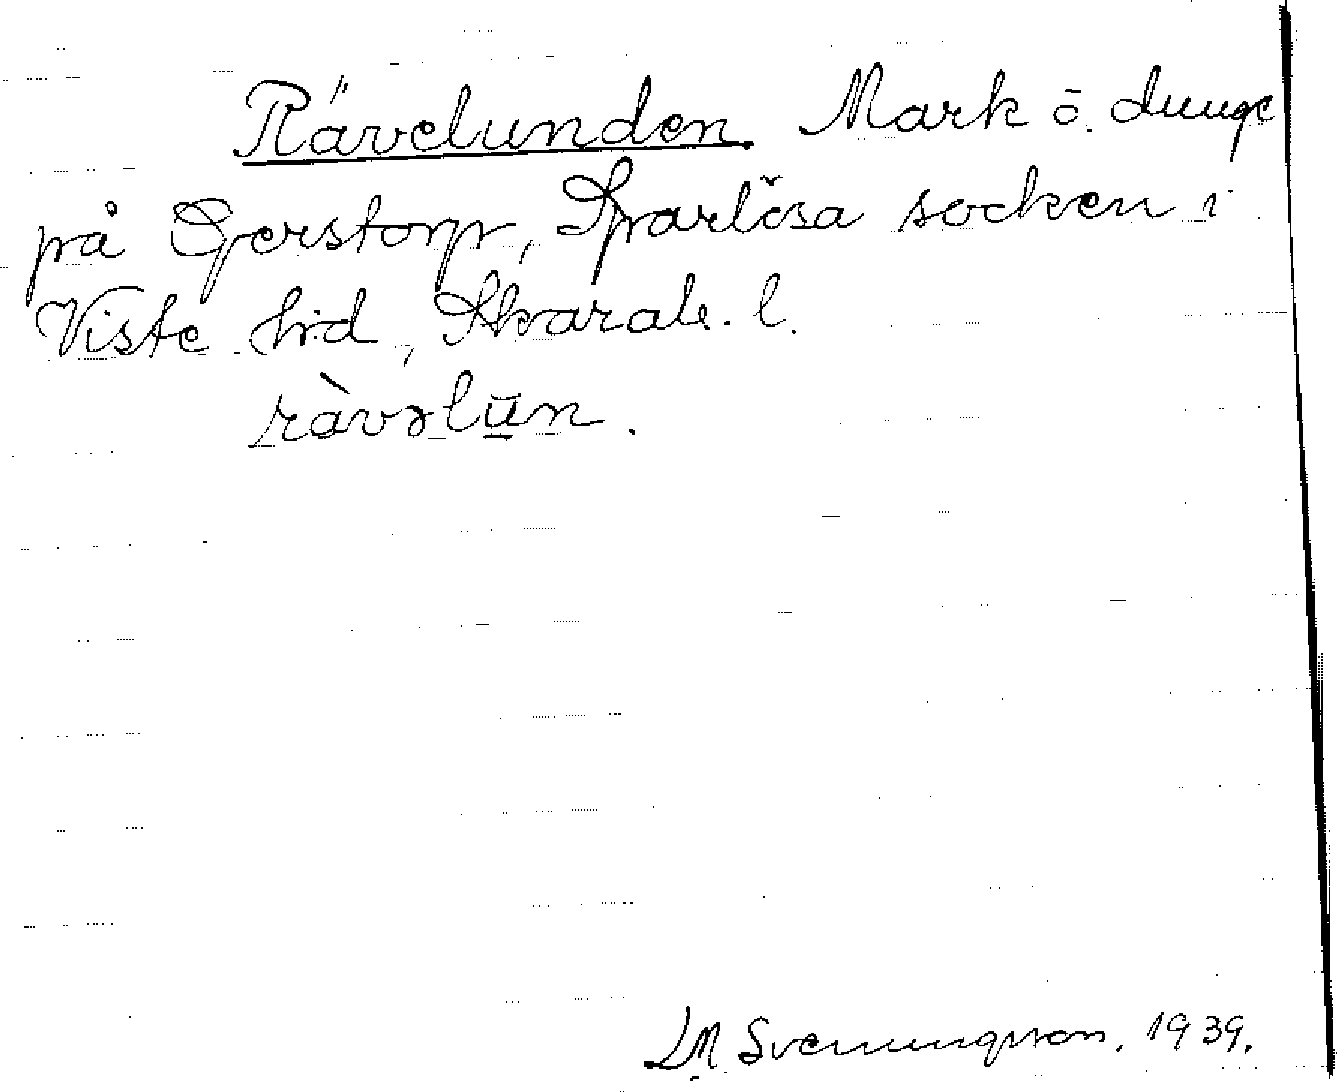 Rävelunden. Mark o. dunge
på Gerstorp, Sparlösa socken i
Viste hrd, Skarab. l.
ràvəlun.
LM Svenungsson. 1939.